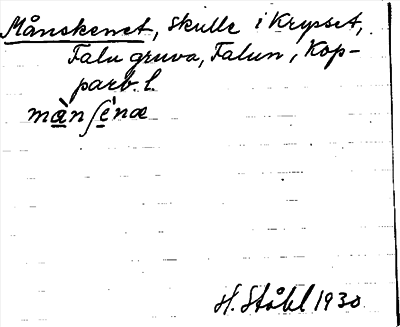 Månskenet, Skulle i Krysset,
Falu gruva, Falun, Kop-
parb. l.
mànʃènæ
H. Ståhl 1930